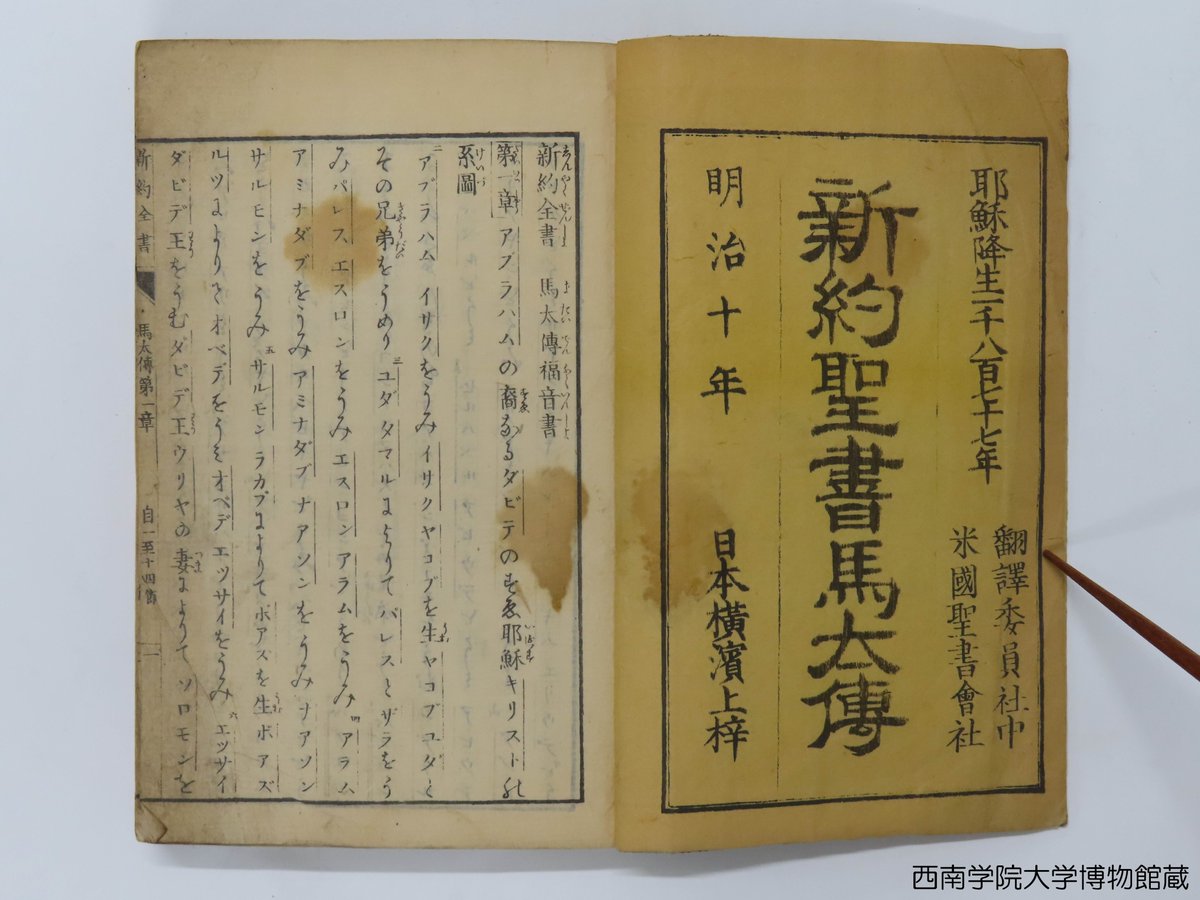 耶穌降生一千八百七十七年
翻譯委員社中
米國聖書會社
新約聖書馬太傳
明治十年
日本橫濱上梓
新約全書 馬太傳福音書
第一章 アブラハムの裔なるダビデのすゑ耶穌キリストの
系圖
二 アブラハム イサクをうみイサクヤコブを生ヤコブユダと
その兄弟をうめり 三 ユダ タマルによりてパレスとザラをう
みパレス エスロンをうみエスロン アラムをうみ 四 アラム
アミナダブをうみアミナダブ ナアソンをうみナアソン
サルモンをうみ 五 サルモン ラカブによりてボアズを生ボアズ
ルツによりてオベデをうミオベデ エツサイをうみ 六 エツサイ
ダビデ王をうむダビデ王ウリヤの妻によりてソロモンを
新約全書 馬太傳第一章 自一至十四節 一
西南学院大学博物館蔵